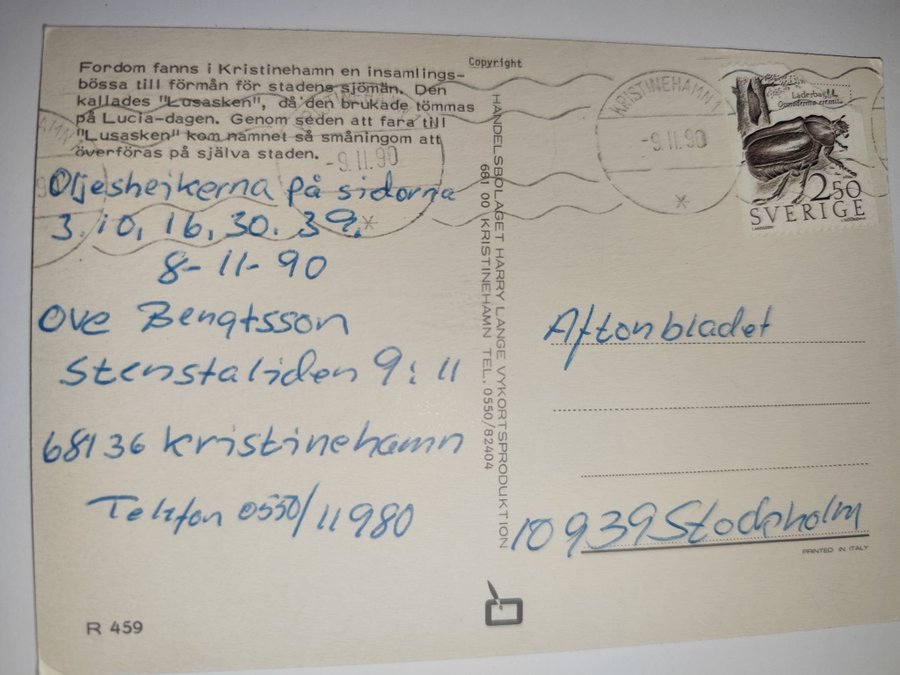 Fordom fanns i Kristinehamn en insamlings-
bössa till förmån för stadens sjömän. Den
kallades "Lusasken", då den brukade tömmas
på Lucia-dagen. Genom seden att fara till
"Lusasken" kom namnet så småningom att
överföras på själva staden.
Oljesheikerna på sidorna
3. 10, 16, 30. 39.
8-11-90
Ove Bengtsson
Stenstaliden 9:11
68136 Kristinehamn
Telefon 0550/11980
R 459
Copyright
HANDELSBOLAGET HARRY LANGE VYKORTSPRODUKTION
681 00 KRISTINEHAMN TEL. 0550/82404
-9.11.90
KRISTINEHAMN 1
-9.11.90
Läderbagge
Osmoderma eremita
2.50
SVERIGE
Aftonbladet
10939 Stockholm
PRINTED IN ITALY